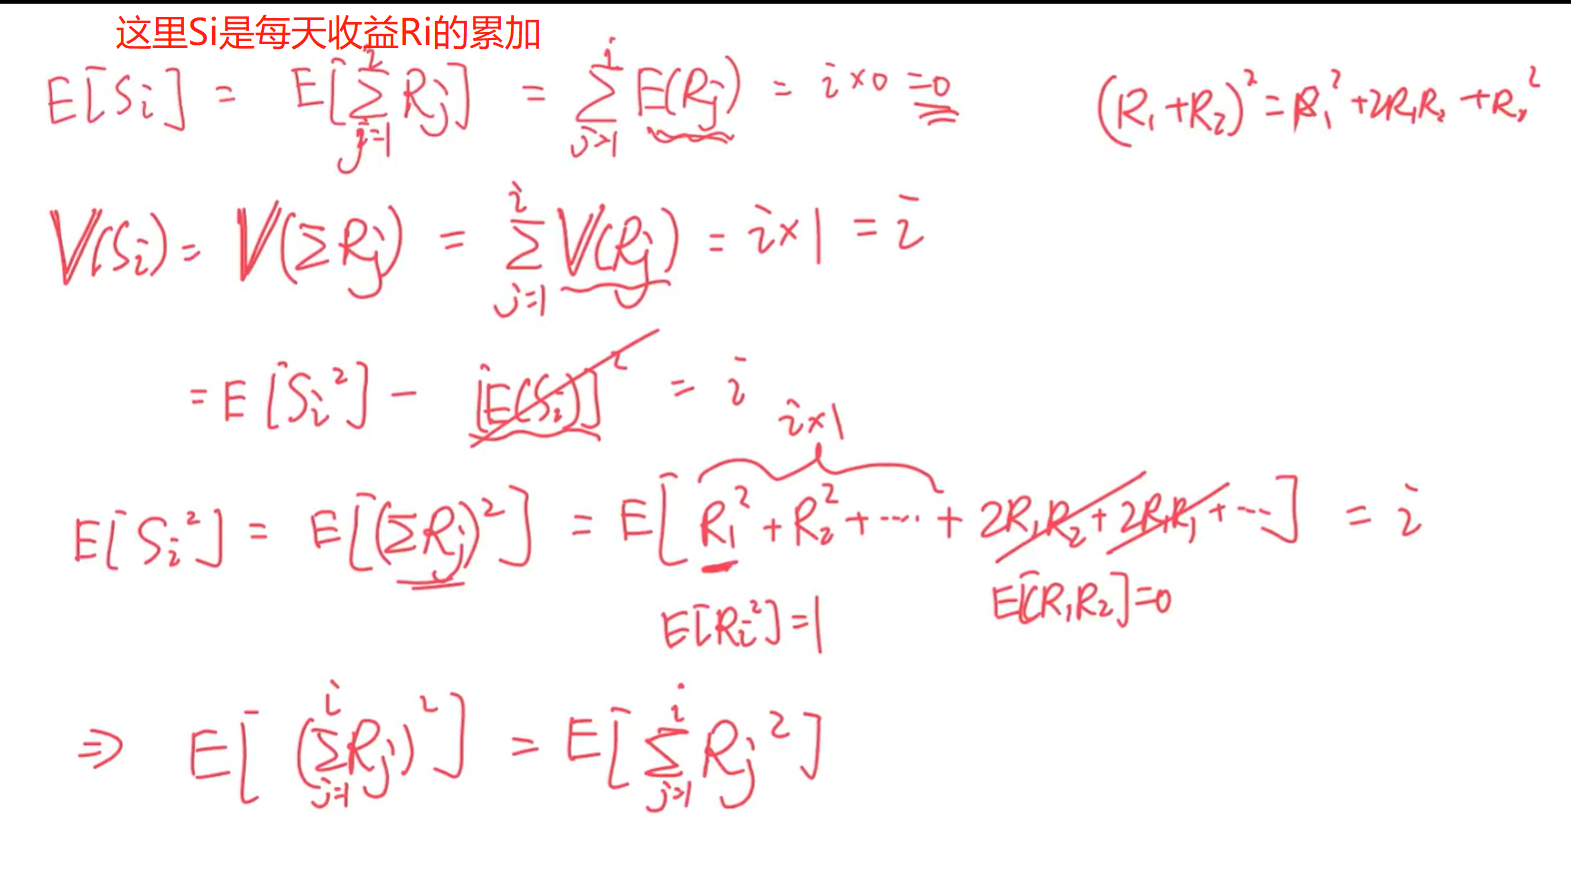 这里Si是每天收益Ri的累加
E[Si] = E[∑_{j=1}^{i} Rj] = ∑_{j=1}^{i} E(Rj) = i×0 = 0
(R₁+R₂)² = R₁² + 2R₁R₂ + R₂²
V(Si) = V(∑Rj) = ∑_{j=1}^{i} V(Rj) = i×1 = i
= E[Si²] - [E(Si)]² = i
i×1
E[Si²] = E[(∑Rj)²] = E[R₁² + R₂² + ···· + 2R₁R₂ + 2R₁R₁ + ···] = i
E[Ri²] = 1
E[(R₁R₂] = 0
⇒ E[(∑_{j=1}^{i} Rj)²] = E[∑_{j=1}^{i} Rj²]